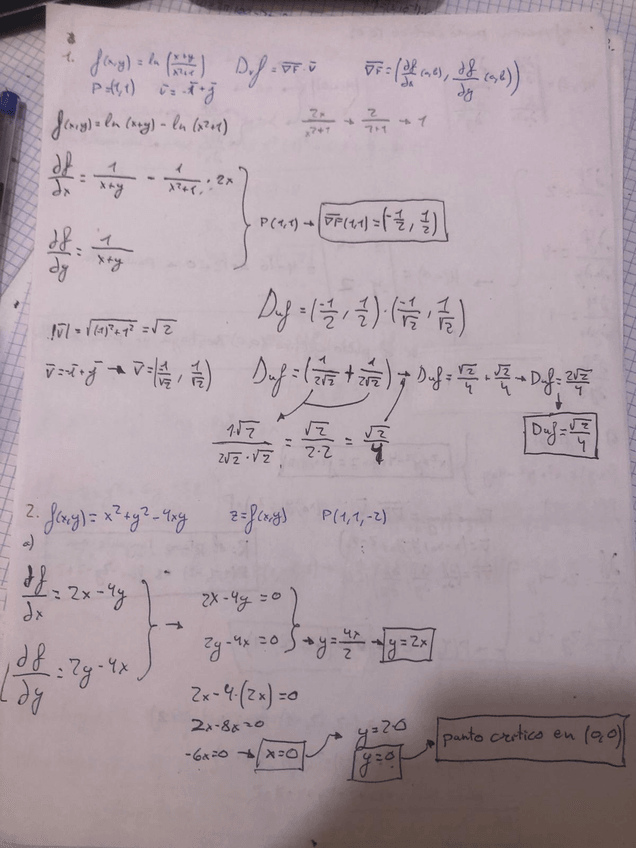 1. f(x,y) = ln (x+y/x²+1) Duf = ∇F · v̄ ∇F = (∂f/∂x (a,b), ∂f/∂y (a,b))
P = (1,1) v̄ = -ī+j̄
f(x,y) = ln (x+y) - ln (x²+1) 2x/x²+1 → 2/1+1 → 1
∂f/∂x = 1/x+y - 1/x²+1 · 2x
P(1,1) → ∇F(1,1) = (-1/2, 1/2)
∂f/∂y = 1/x+y
Duf = (-1/2, 1/2) · (-1/√2, 1/√2)
|v̄| = √(1)²+1² = √2
v̄ = -ī+j̄ → v̄ = (-1/√2, 1/√2) Duf = (1/2√2 + 1/2√2) → Duf = √2/4 + √2/4 → Duf = 2√2/4
1·√2/2√2·√2 = √2/2·2 = √2/4 Duf = √2/4
2. f(x,y) = x²+y²-4xy z = f(x,y) P(1,1,-2)
a)
∂f/∂x = 2x-4y → 2x-4y = 0
∂f/∂y = 2y-4x 2y-4x = 0 → y = 4x/2 → y = 2x
2x-4·(2x) = 0
2x-8x = 0 y = 2·0
-6x = 0 → x = 0 y = 0 punto crítico en (0,0)